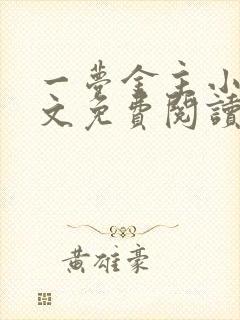 一夢金主小
文免費閱讀
黃雄豪